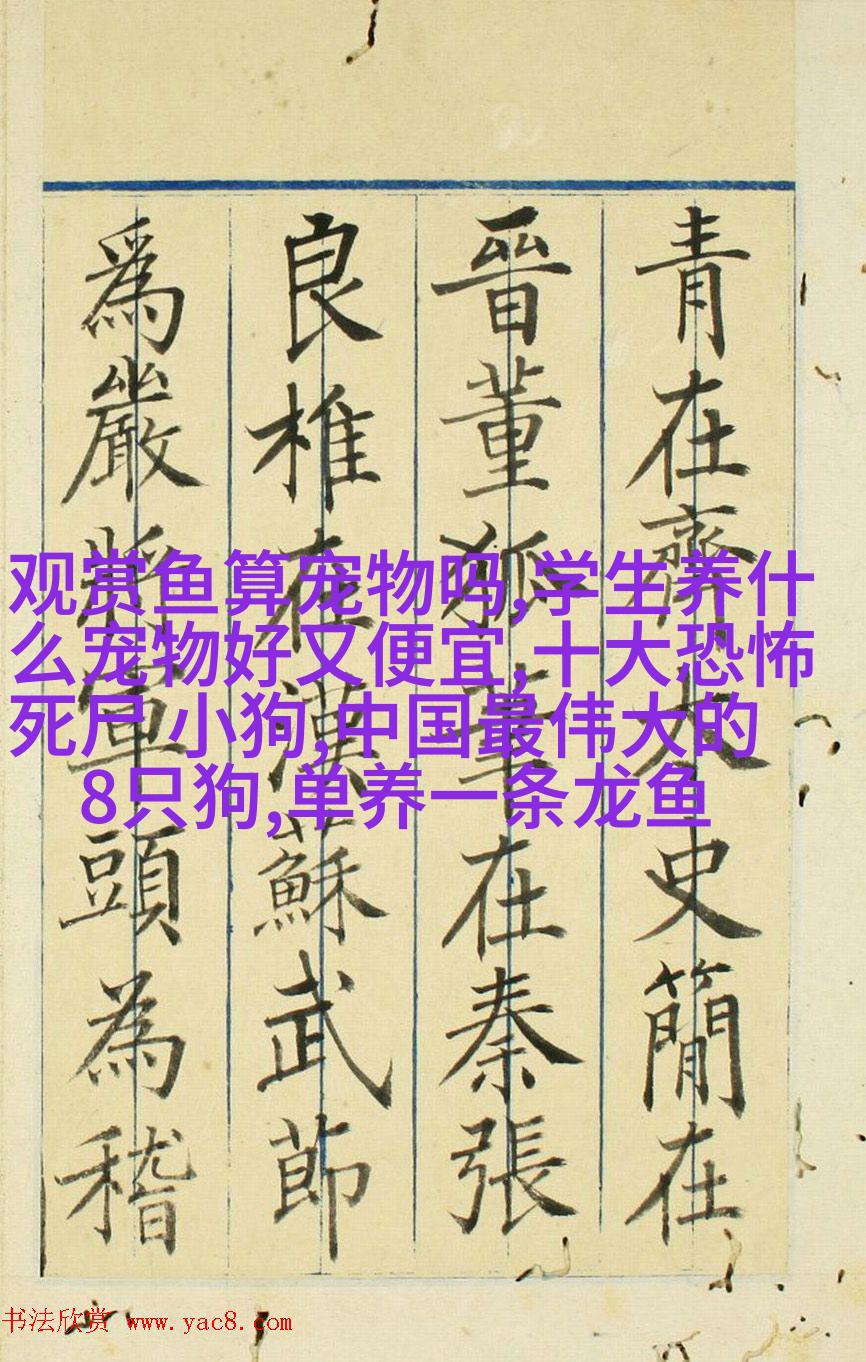 青在齊太史簡在
晉董狐筆在秦張
良椎在漢蘇武節
爲嚴將軍頭為稽
观赏鱼算宠物吗,学生养什
么宠物好又便宜,十大恐怖
死尸 小狗,中国最伟大的
8只狗,单养一条龙鱼
书法欣赏 www.yac8.com